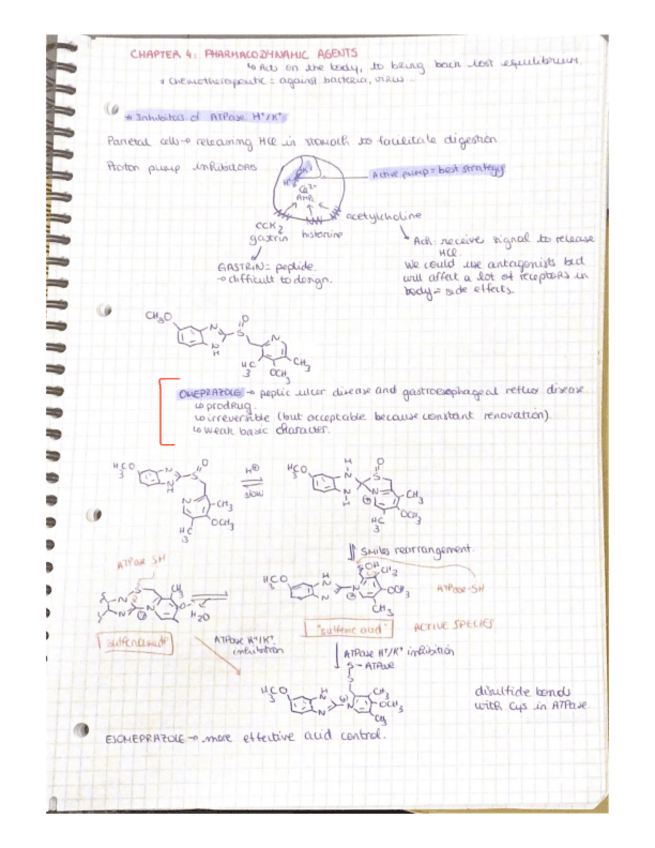 CHAPTER 4: PHARMACODYNAMIC AGENTS
↳ Act on the body, to bring back lost equilibrium.
* Chemotherapeutic = against bacteria, virus...
* Inhibitors of ATPase H⁺/K⁺
Parietal cells → releasing HCl in stomach to facilitate digestion
Proton pump inhibitors
H⁺ K⁺
Active pump = best strategy
Ca²⁺
AMPc
CCK₂
gastrin
histamine
acetylcholine
GASTRIN = peptide.
→ difficult to design.
Ach: receive signal to release
HCl.
We could use antagonists but
will affect a lot of receptors in
body = side effects.
CH₃O N S O N
N H
H₃C OCH₃ CH₃
OMEPRAZOLE → peptic ulcer disease and gastroesophageal reflux disease.
↳ prodrug.
↳ irreversible (but acceptable because constant renovation).
↳ weak basic character.
H₃CO N S O
N H
N CH₃
OCH₃
H₃C
H⊕
slow
H₃CO H N S O
N H
N ⊕ CH₃
OCH₃
H₃C
Smiles rearrangement.
ATPase SH
S N N ⊕ CH₃ O
H₂O
"sulfenamide"
H₃CO H N N N ⊕
SOH CH₃
OCH₃
CH₃
ATPase-SH
"sulfenic acid"
ACTIVE SPECIES
ATPase H⁺/K⁺
inhibition
ATPase H⁺/K⁺ inhibition
S - ATPase
S
H₃CO H N N N ⊕
CH₃
OCH₃
CH₃
disulfide bonds
with Cys in ATPase.
ESOMEPRAZOLE → more effective acid control.